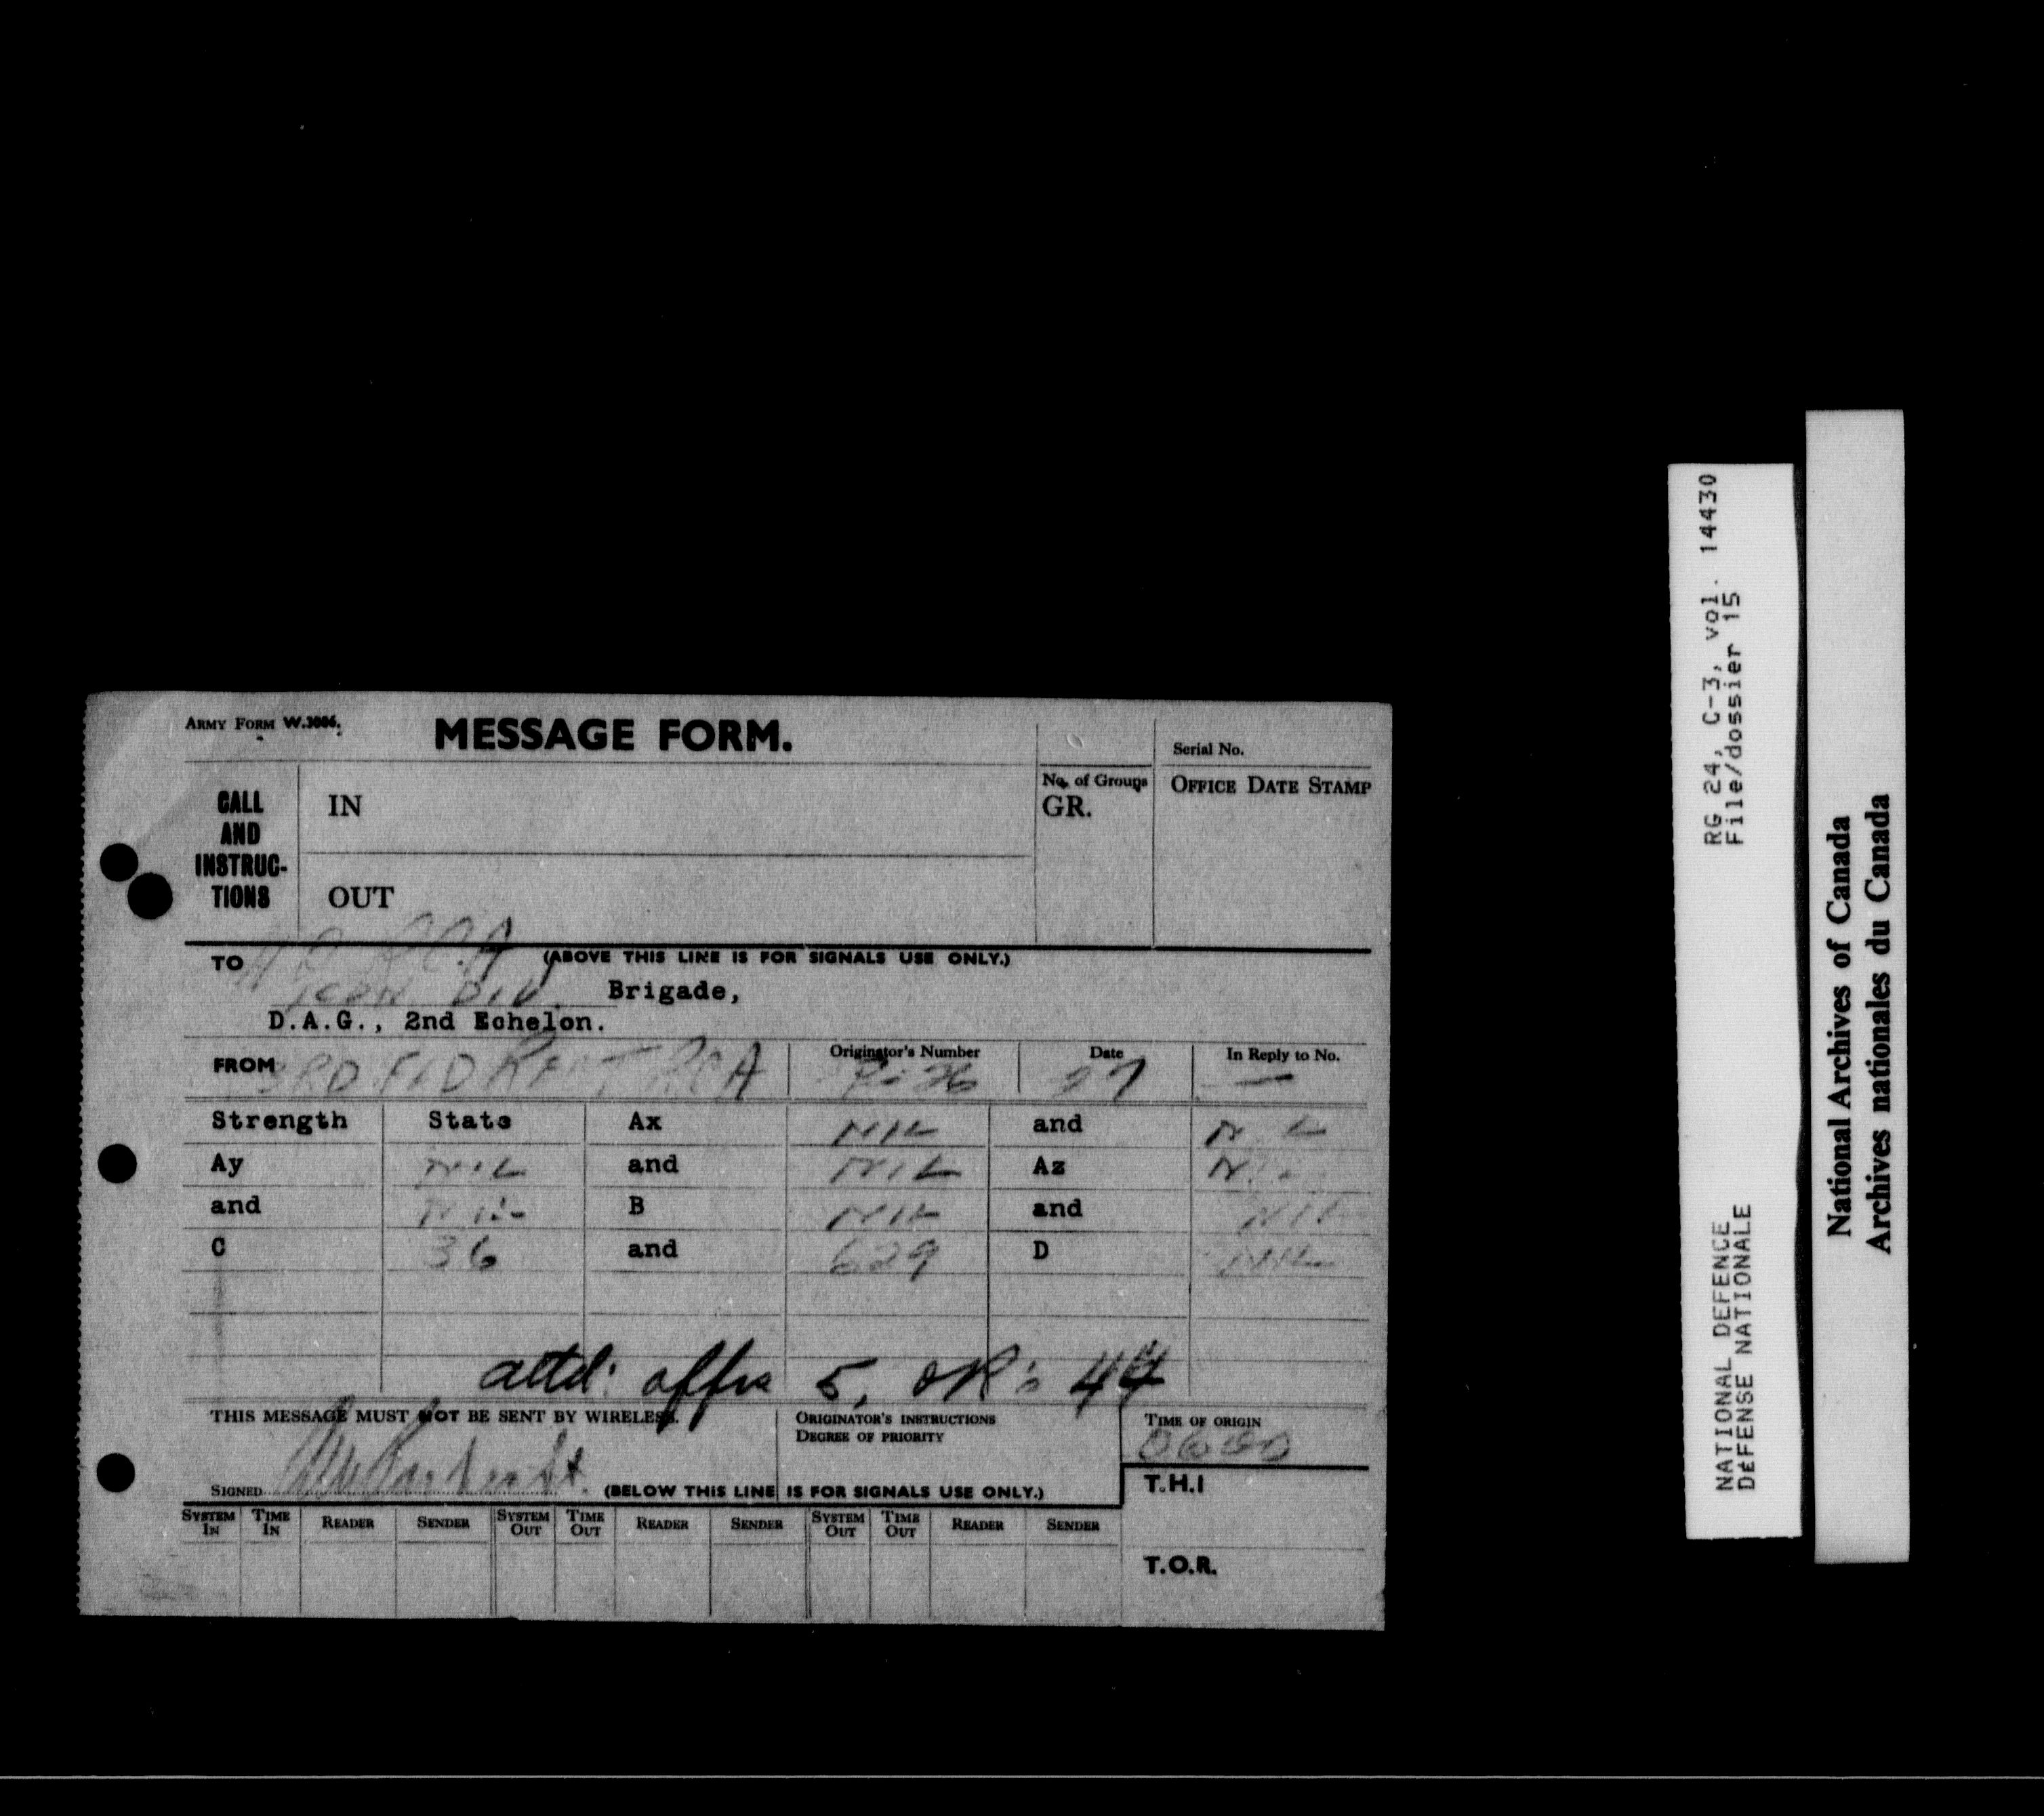 ARMY FORM W.3006. MESSAGE FORM. Serial No.
CALL AND INSTRUC-TIONS IN No. of Groups GR. OFFICE DATE STAMP
OUT
TO RCA (ABOVE THIS LINE IS FOR SIGNALS USE ONLY.)
1 CDN DIV. Brigade,
D.A.G., 2nd Echelon.
FROM 3RD FLD REGT RCA Originator's Number Date 27 In Reply to No. —
Strength State Ax NIL and NIL
Ay NIL and NIL Az NIL
and NIL B NIL and NIL
C 36 and 629 D NIL
attd: offrs 5, OR: 44
THIS MESSAGE MUST NOT BE SENT BY WIRELESS. ORIGINATOR'S INSTRUCTIONS DEGREE OF PRIORITY TIME OF ORIGIN 0600
SIGNED (BELOW THIS LINE IS FOR SIGNALS USE ONLY.) T.H.I
SYSTEM IN TIME IN READER SENDER SYSTEM OUT TIME OUT READER SENDER SYSTEM OUT TIME OUT READER SENDER
T.O.R.
RG 24, C-3, vol. 14430
File/dossier 15
NATIONAL DEFENCE
DÉFENSE NATIONALE
National Archives of Canada
Archives nationales du Canada